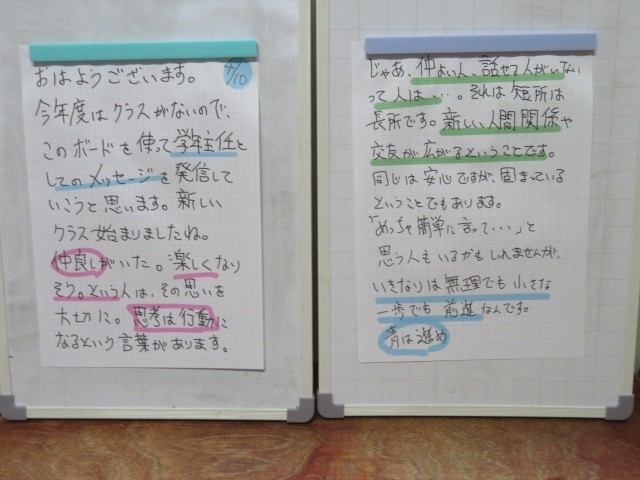 おはようございます。 4/10
今年度はクラスがないので、
このボードを使って学年主任と
してのメッセージを発信して
いこうと思います。新しい
クラス始まりましたね。
仲良しがいた。楽しくなり
そう。という人は、その思いを
大切に。思考は行動に
なるという言葉があります。
じゃあ、仲よい人、話せる人がいない
って人は・・・。それは短所は
長所です。新しい人間関係や
交友が広がるということです。
同じは安心ですが、固まっている
ということでもあります。
「めっちゃ簡単に言って・・・」と
思う人もいるかもしれませんが、
いきなりは無理でも小さな
一歩でも前進なんです。
青は進め